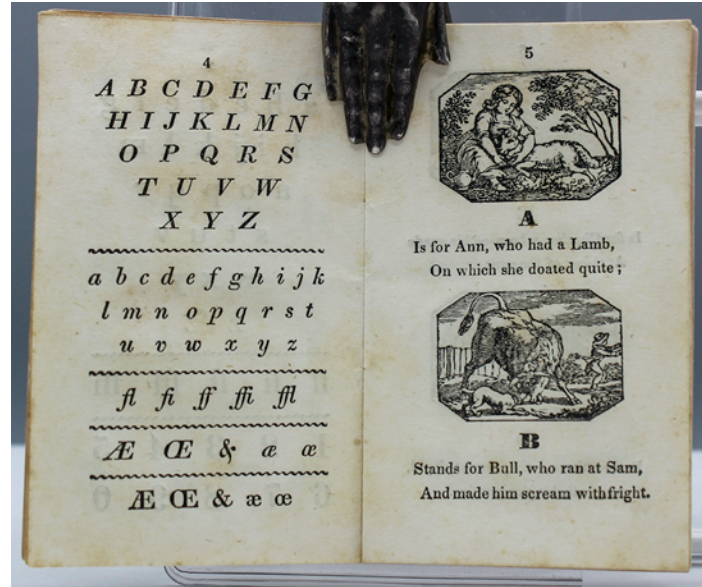 4
A B C D E F G
H I J K L M N
O P Q R S
T U V W
X Y Z
a b c d e f g h i j k
l m n o p q r s t
u v w x y z
fl fi ff ffi ffl
Æ Œ & æ œ
Æ Œ & æ œ
5
A
Is for Ann, who had a Lamb,
On which she doated quite;
B
Stands for Bull, who ran at Sam,
And made him scream with fright.